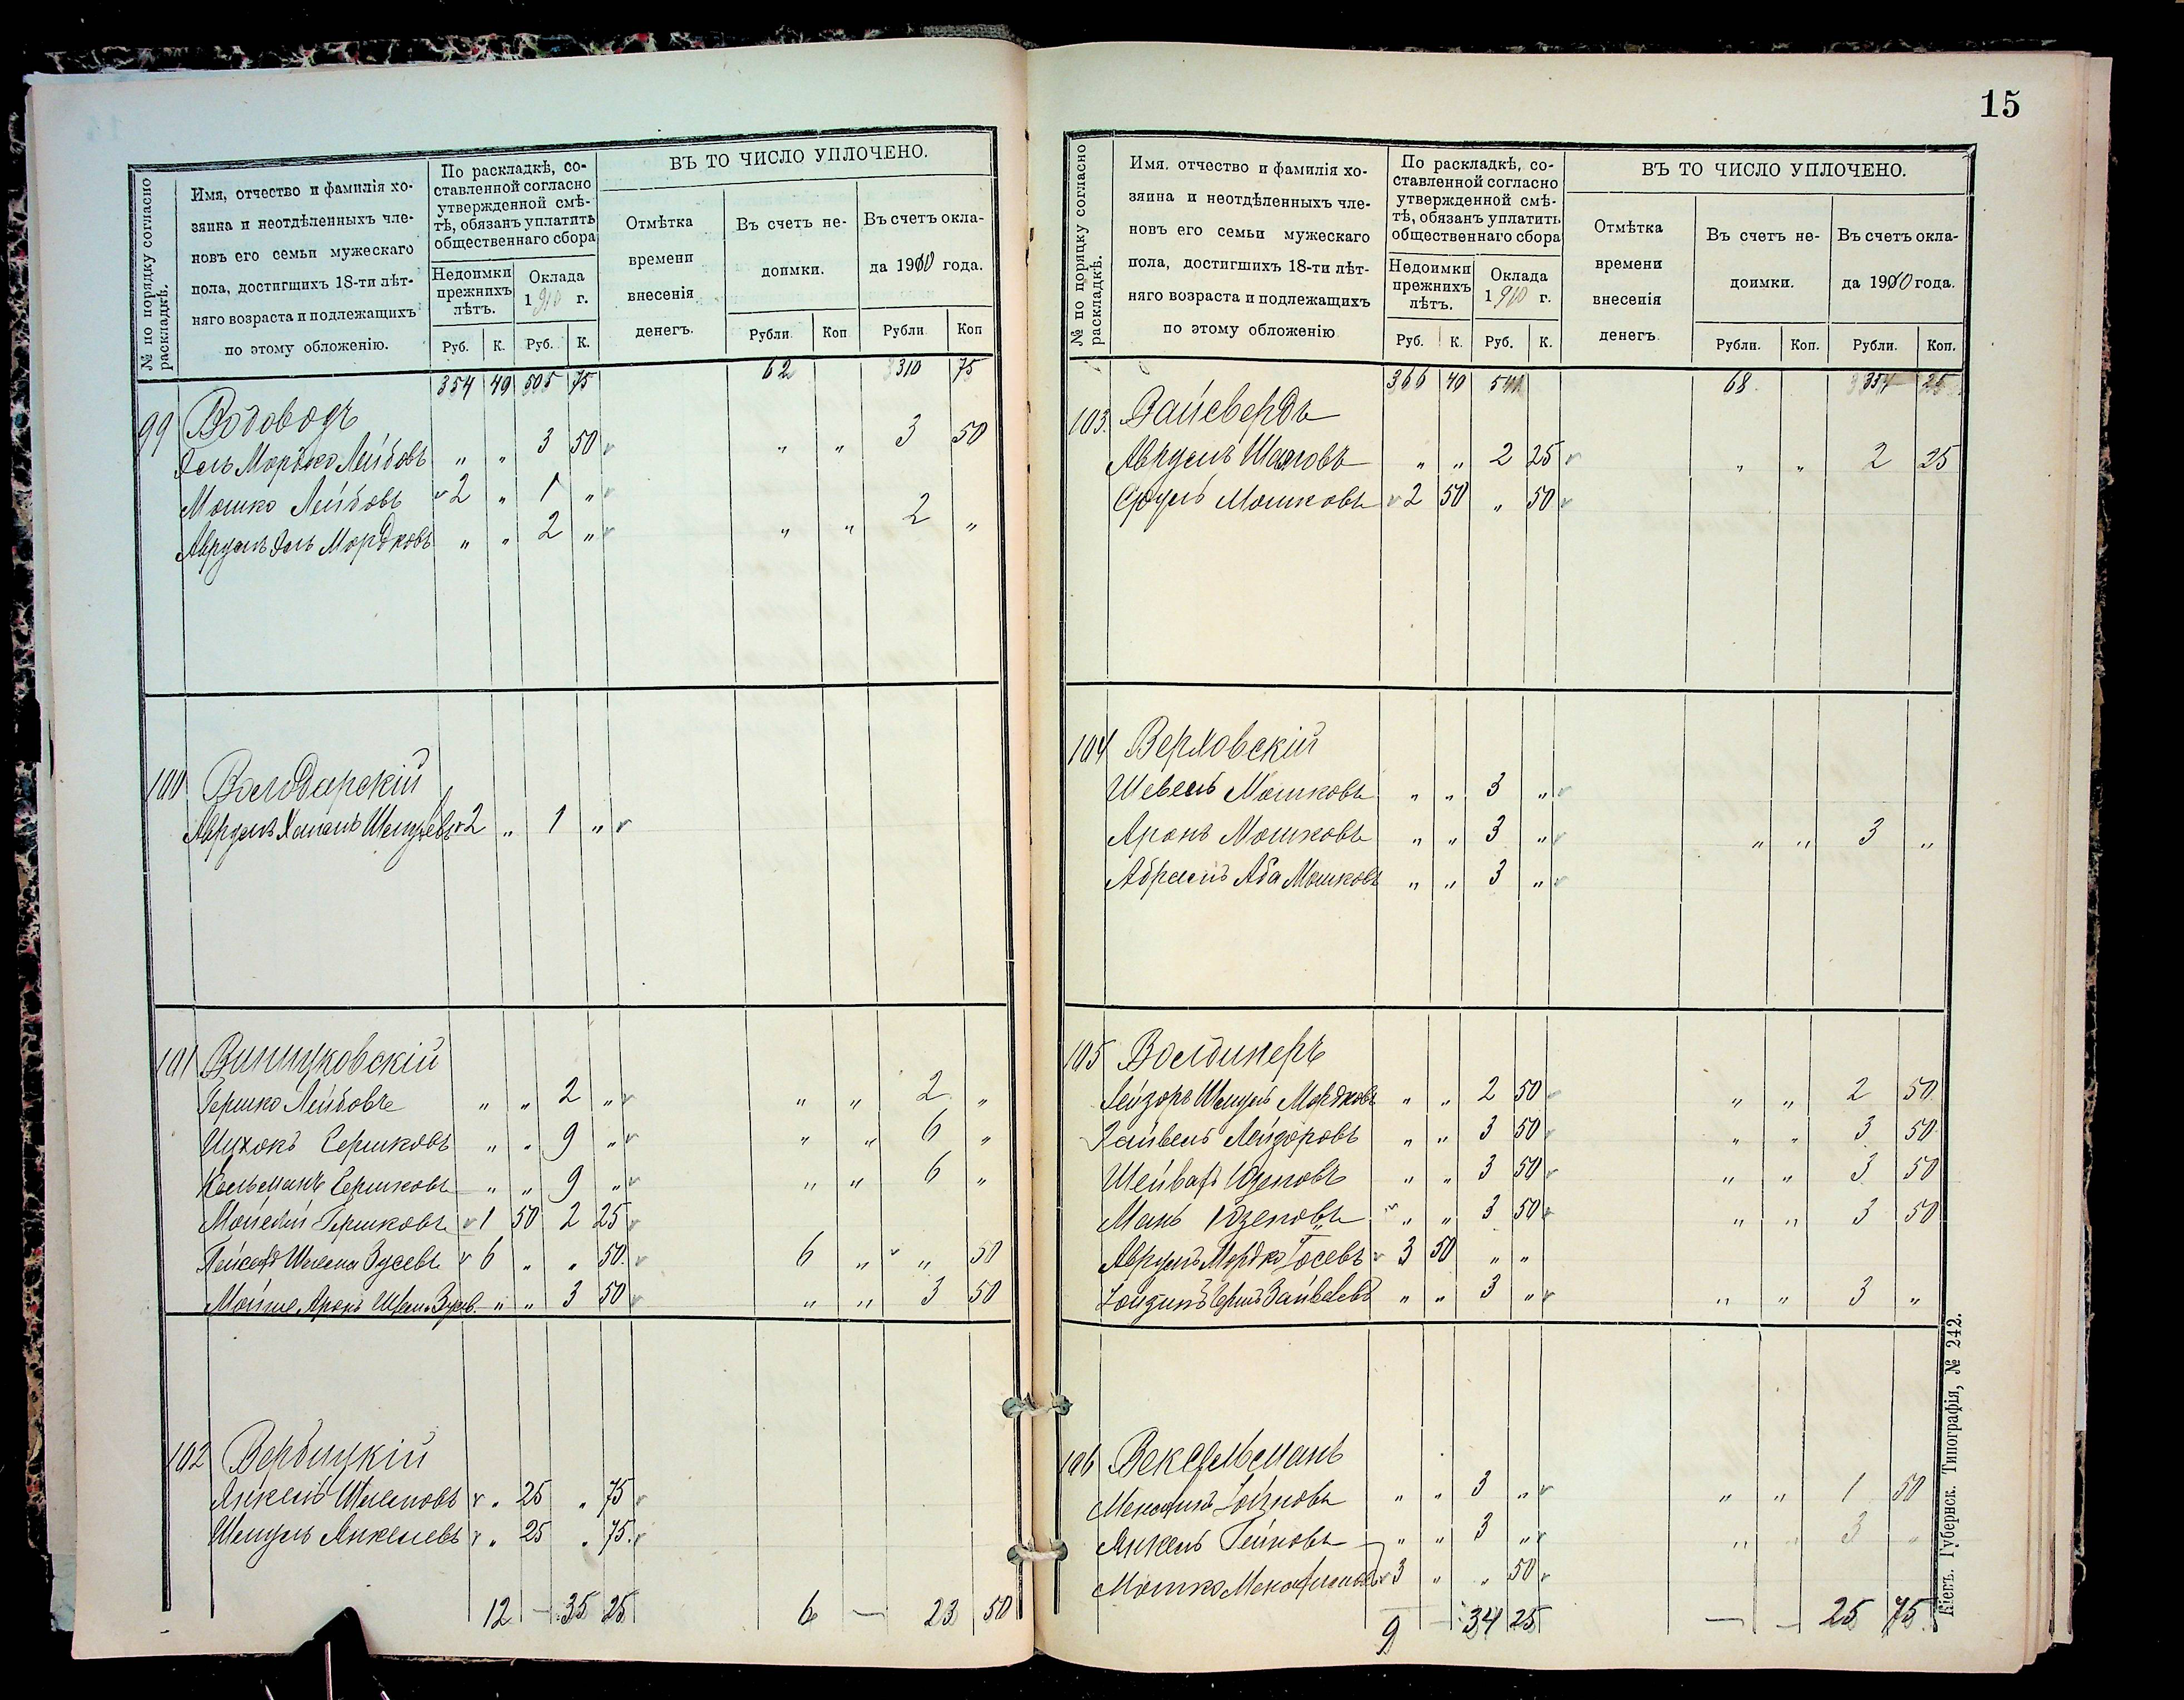 № по порядку согласно раскладкѣ.
Имя, отчество и фамилія хо-
зяина и неотдѣленныхъ чле-
новъ его семьи мужескаго
пола, достигшихъ 18-ти лѣт-
няго возраста и подлежащихъ
по этому обложенію.
По раскладкѣ, со-
ставленной согласно
утвержденной смѣ-
тѣ, обязанъ уплатить
общественнаго сбора
Недоимки прежнихъ лѣтъ.
Оклада 1910 г.
Руб. К. Руб. К.
ВЪ ТО ЧИСЛО УПЛОЧЕНО.
Отмѣтка
времени
внесенія
денегъ.
Въ счетъ не-
доимки.
Въ счетъ окла-
да 1910 года.
Рубли Коп Рубли Коп
354 40 505 75 62 310 75
99 Водоводъ
Гель Мордко Лейбовъ " " 3 50 " " 3 50
Мошко Лейбовъ 2 " 1 "
Аврумъ Гель Мордковъ " " 2 " " " 2 "
100 Володарскій
Аврумъ Хаимъ Шмулевъ 2 " 1 "
101 Винницковскій
Гершко Лейбовъ " " 2 " " " 2 "
Ицхокъ Гершковъ " " 9 " " " 6 "
Кельманъ Гершковъ " " 9 " " " 6 "
Мойсей Гершковъ 1 50 2 25
Лейсефъ Шлема Зусевъ 6 " " 50 6 " " 50
Мойше Аронъ Шлем. Зусев. " " 3 50 " " 3 50
102 Вербицкій
Янкель Шлемовъ " 25 " 75
Шмуль Янкелевъ " 25 " 75
12 — 35 25 6 — 23 50
15
№ по порядку согласно раскладкѣ.
Имя. отчество и фамилія хо-
зяина и неотдѣленныхъ чле-
новъ его семьи мужескаго
пола, достигшихъ 18-ти лѣт-
няго возраста и подлежащихъ
по этому обложенію
По раскладкѣ, со-
ставленной согласно
утвержденной смѣ-
тѣ, обязанъ уплатить
общественнаго сбора
Недоимки прежнихъ лѣтъ.
Оклада 1910 г.
Руб. К. Руб. К.
ВЪ ТО ЧИСЛО УПЛОЧЕНО.
Отмѣтка
времени
внесенія
денегъ.
Въ счетъ не-
доимки.
Въ счетъ окла-
да 1910 года.
Рубли. Коп. Рубли. Коп.
366 40 541 68 334 25
103. Вайсбердъ
Аврумъ " " 2 25 " " 2 25
Сруль Мошковъ 2 50 " 50
104 Верховскій
Шевель Мошковъ " " 3 "
Аронъ Мошковъ " " 3 " " " 3 "
Абрамъ Аба Мошковъ " " 3 "
105 Волдинеръ
Лейзоръ Шмуль Мордковъ " " 2 50 " " 2 50
Зайвель Лейзоровъ " " 3 50 " " 3 50
" " 3 50 " " 3 50
" " 3 50 " " 3 50
Аврумъ Мордко Іосевъ 3 50 " "
Гершъ Зайвелевъ " " 3 " " " 3 "
106 Вексельманъ
" " 3 " " " 1 50
Янкель " " 3 " " " 3 "
Мошко 3 " " 50
9 — 34 25 — — 25 75
Кіевъ. Губернск. Типографія, № 242.